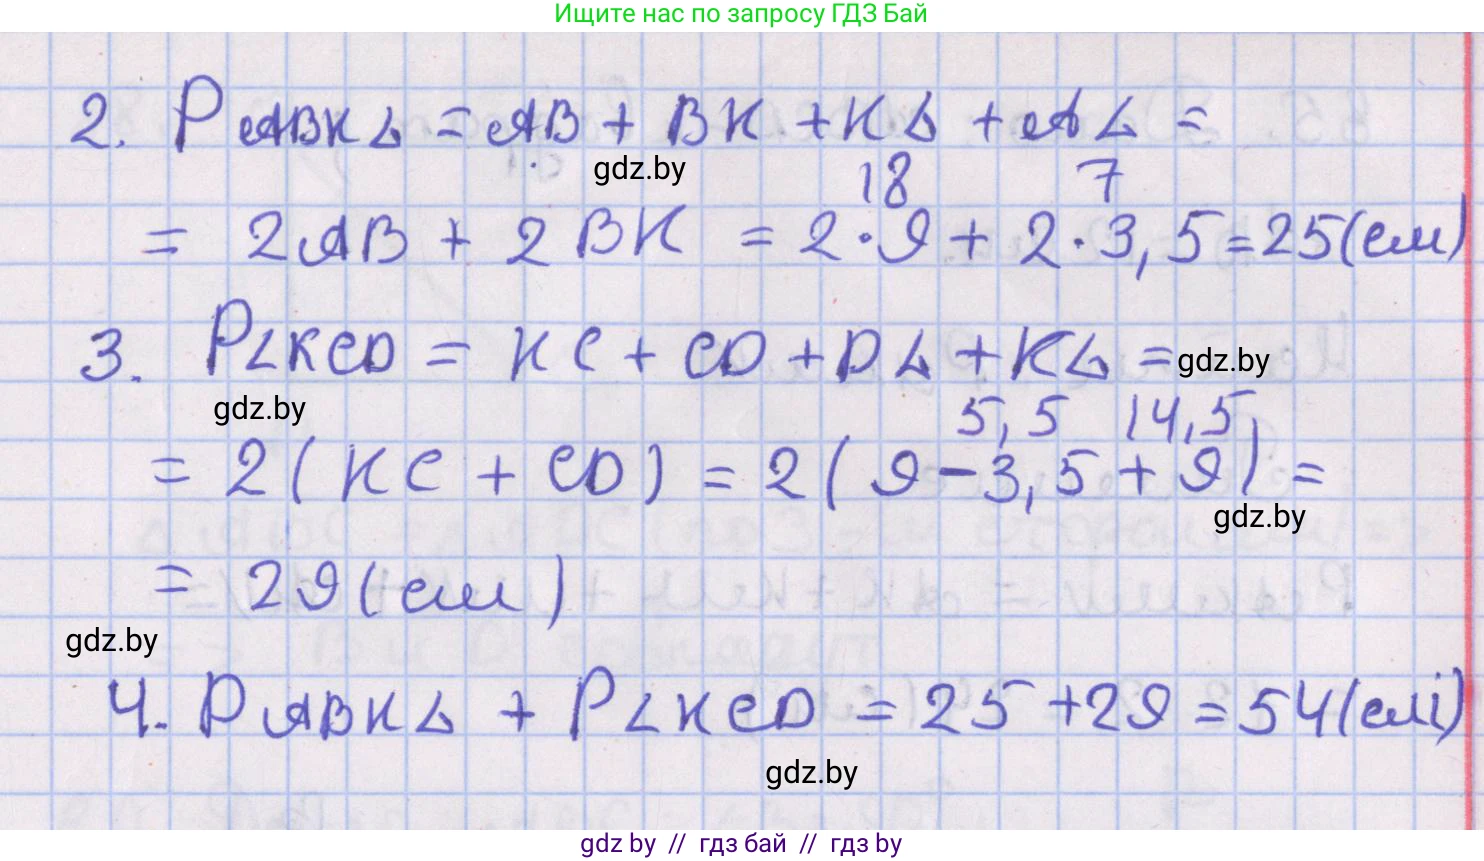 Ищите нас по запросу ГДЗ Бай
2. P ABKL = AB + BK + KL + AL =
gdz.by
18 7
= 2AB + 2BK = 2·9 + 2·3,5 = 25(см)
3. PLKCD = KC + CD + DL + KL =
gdz.by
gdz.by
5,5 14,5
= 2(KC + CD) = 2(9-3,5+9) =
gdz.by
= 29(см)
gdz.by
4. PABKL + PLKCD = 25+29 = 54(см)
gdz.by
gdz by // гдз бай // гдз by